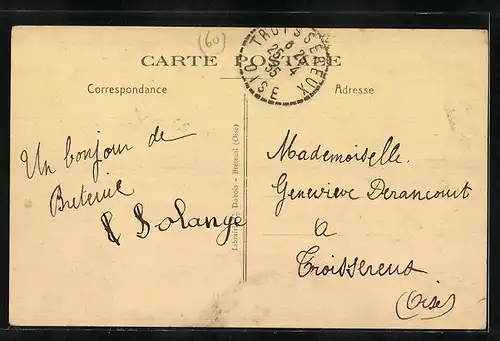 (60)
CARTE POSTALE
TROISSEREUX
OISE
Correspondance
Adresse
Un bonjour de
Solange
Librairie Dubois - Breteuil (Oise)
Mademoiselle
Geneviève Derancourt
a
Troissereux
(Oise)